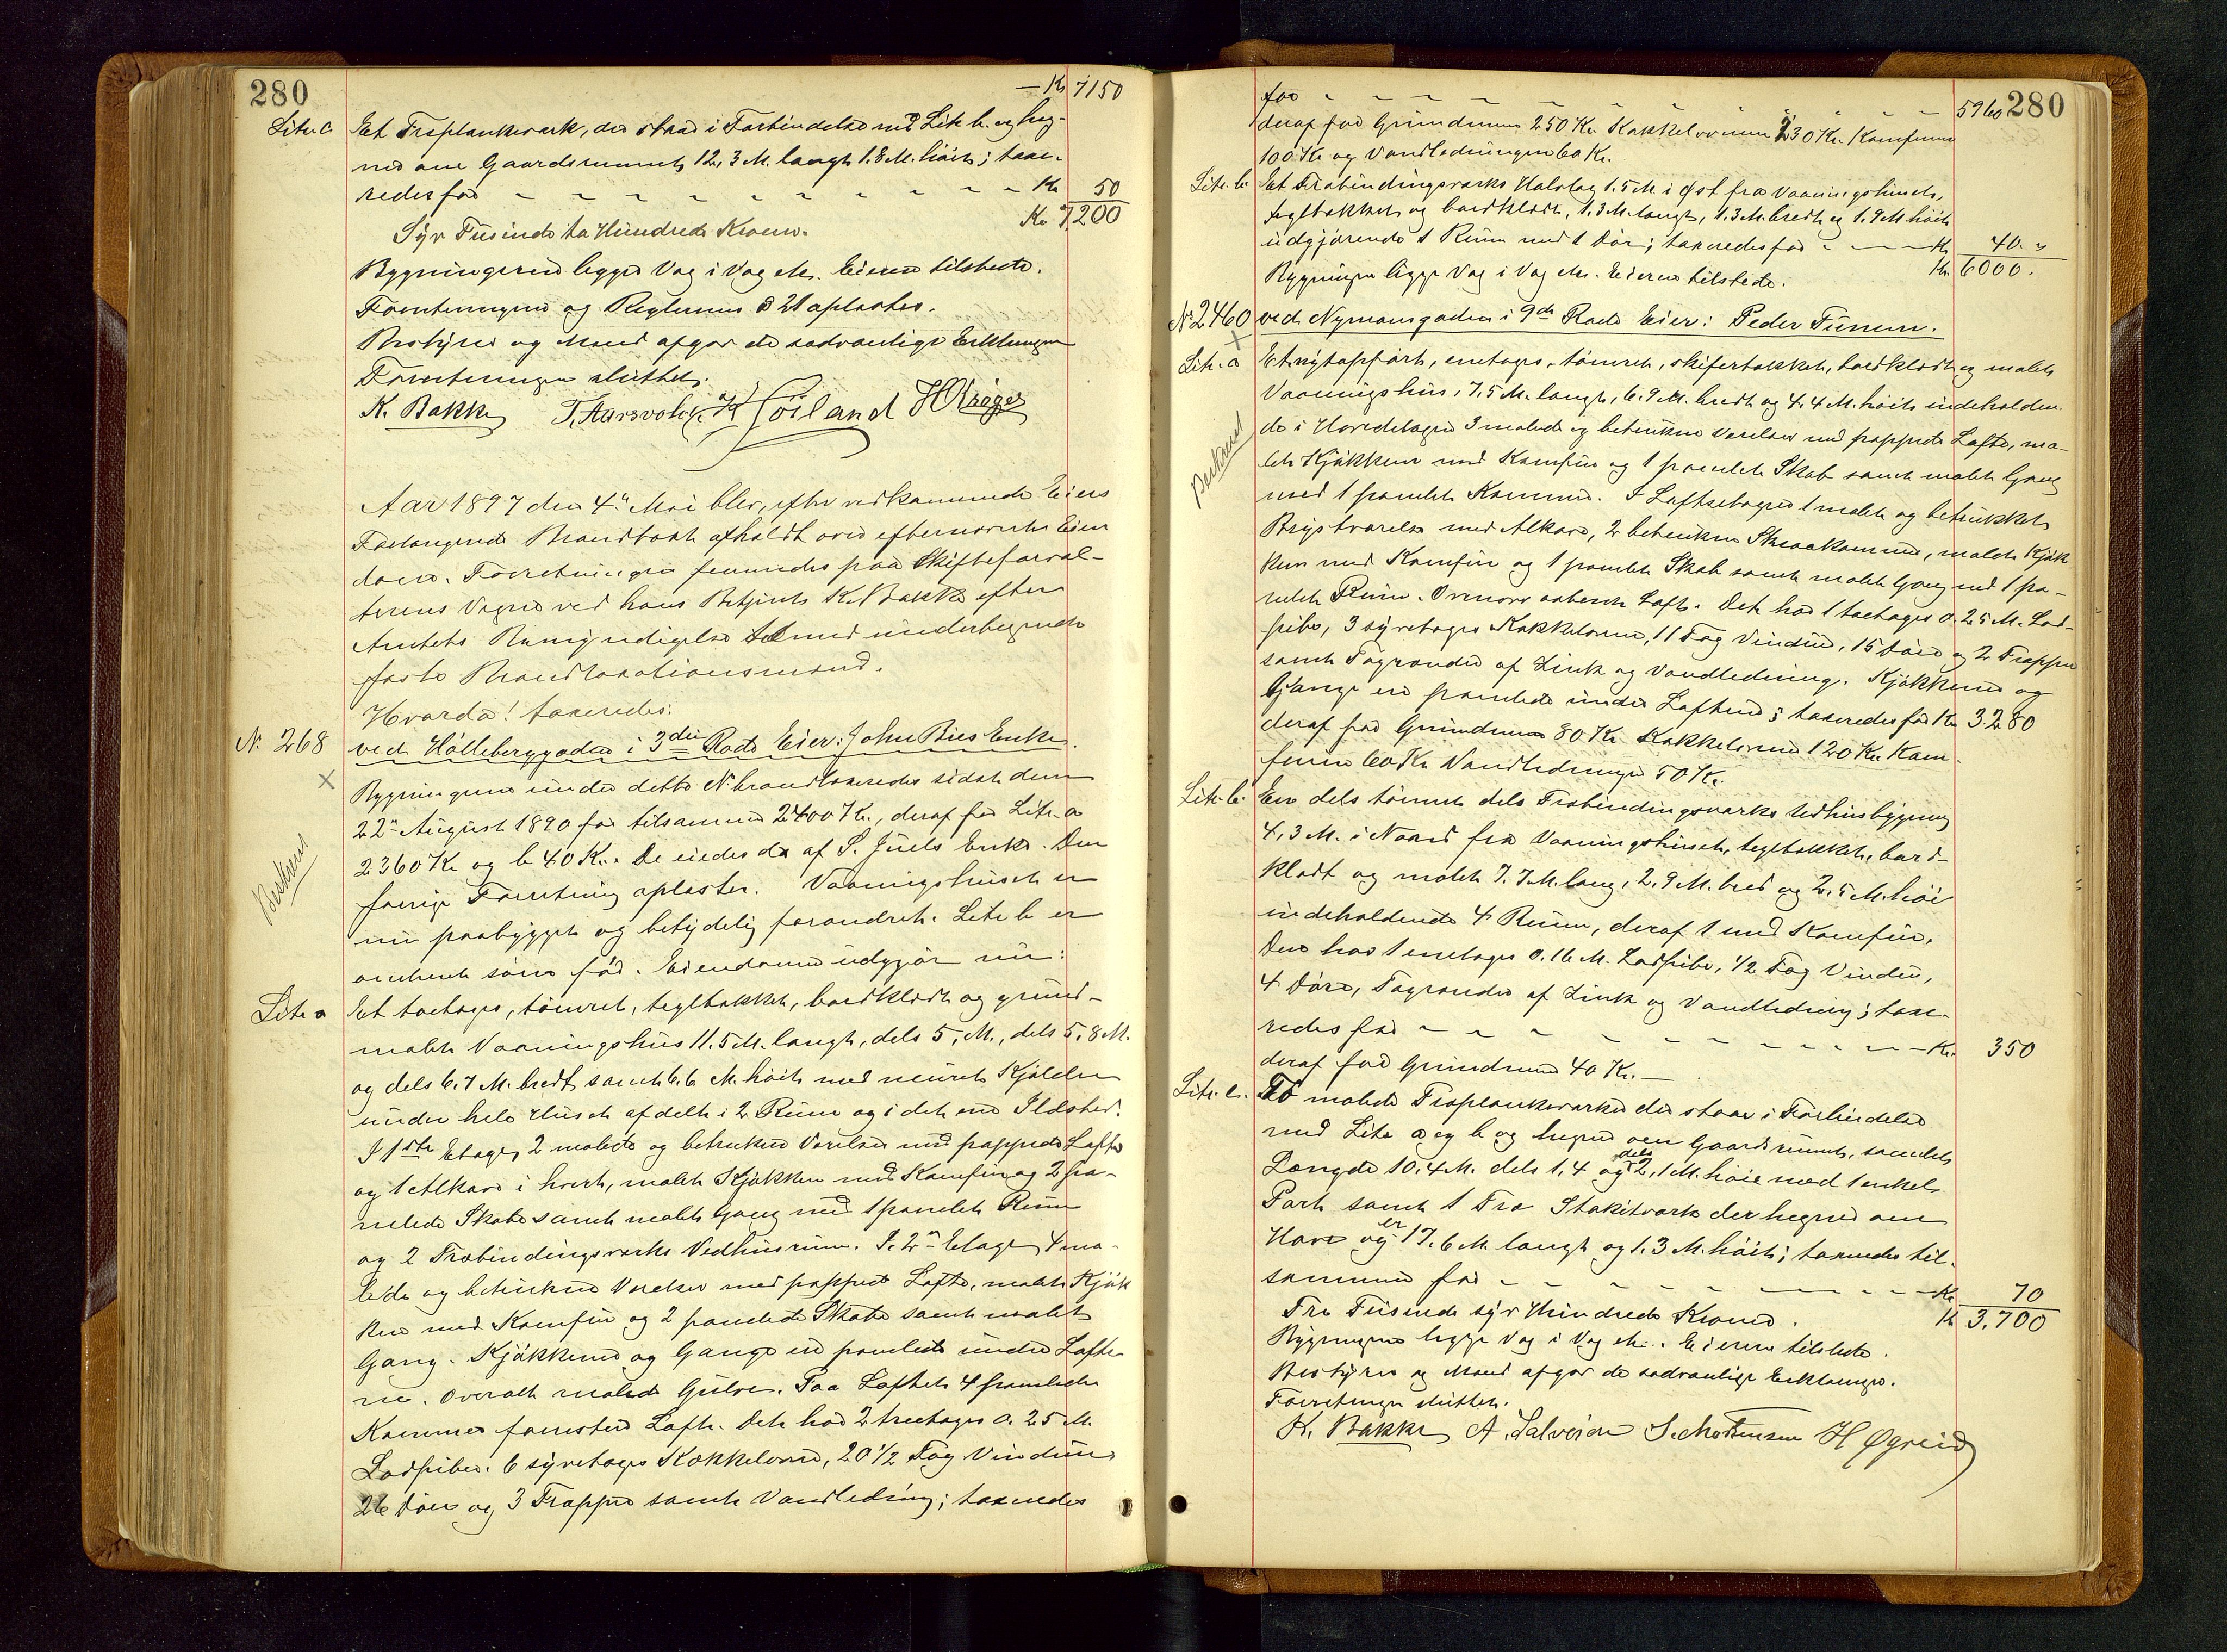 280
— Kr 7150
Litr. c Et Træplankeværk, der staar i Forbindelse med Litr. b. og heg-
ner om Gaardsrummet, 12,3 M. langt 1.8 M. høit; taxe-
redes for - - - - - - - - - - Kr 50
Kr 7,200
Syv Tusinde to Hundrede Kroner.
Bygningerne ligger Væg i Væg etc. Eieren tilstede.
Forretningen og Reglernes § 21 oplæstes.
Bestyrer og Mænd afgav de sædvanlige Erklæringer
Forretningen sluttet.
K. Bakke T. Aarsvold K Høiland H Krøger
Aar 1897 den 4de Mai blev, efter vedkommende Eiers
Forlangende Brandtaxt afholdt over efternævnte Eien-
dom. Forretningen fremmedes paa Skifteforval-
terens Vegne ved hans Betjent K. Bakke efter
Amtets Bemyndigelse med underhegnede
faste Brandtaxationsmænd.
Hvorda! taxeredes:
N. 268 ved Hølleberggaden i 3die Rode Eier: John Bies Enke.
Bygningerne under dette N brandtaxeredes sidst den
22de August 1890 for tilsammen 2400 Kr., deraf for Litr. a
2360 Kr og b 40 Kr. De eiedes da af S. Juels Enke. Den
Beskrevet
forrige Forretning oplæstes. Vaaningshuset er
nu paabygget og betydelig forandret. Litr b er
omtrent som før. Eiendommen udgjør nu:
Litr a Et toetages, tømret, tegltækket, bordklædt og grund-
malet Vaaningshus 11.5 M. langt, dels 5, M., dels 5,8 M.
og dels 6.7 M. bredt samt 6.6 M. høit med muret Kjælder
under hele Huset afdelt i 2 Rum og i det ene Ildsted.
I 1ste Etage, 2 malede og betrukne Værelser med pappede Lofte
og 1 Alkove i hvert, malet Kjøkken med Komfur og 2 pa-
nelede Skabe samt malet Gang med 1 panelet Rum
og 2 Træbindingsværks Vedhusrum. I 2den Etage 4 ma-
lede og betrukne Værelser med pappede Lofte, malet Kjøk
ken med Komfur og 2 panelede Skabe samt malet
Gang. Kjøkkener og Gange er panelede under Lofte-
ne. Overalt malede Gulve. Paa Loftet 4 panelede
Kammer forresten Loft. Det har 2 treetages 0.25 M.
Ladpiber. 6 syvetages Kakkelovne, 20 1/2 Fag Vinduer
26 Døre og 3 Trapper samt Vandledning; taxeredes
280
for - - - - - - - - - - 5960
deraf for Grundmur 250 Kr. Kakkelovnene 230 Kr. Komfurene
100 Kr og Vandledningen 60 Kr.
Litr. b. Et Træbindingsværks Halvtag 1.5 M. i Øst fra Vaaningshuset,
tegltækket og bordklædt, 1,3 M. langt, 1.3 M. bredt og 1.9 M. høit
udgjørende 1 Rum med 1 Dør; taxeredes for - - - Kr 40. "
Kr. 6000.
Bygningen ligge Væg i Væg etc. Eieren tilstede.
N. 2460 ved Nymansgaden i 9de Rode Eier: Peder Tunem.
Litr. a Et nytopført, enetages, tømret, skifertækket, bordklædt og malet
Vaaningshus, 7,5 M. langt, 6.9 M. bredt og 4.4 M. høit indeholden-
de i Hovedetagen 3 malede og betrukne Værelser med pappede Lofte, ma-
let Kjøkken med Komfur og 1 panelet Skab samt malet Gang
Beskrevet
med 1 panelet Kammer. I Loftsetagen 1 malet og betrukket
Brystværelse med Alkove, 2 betrukne Skraakammer, malet Kjøk
ken med Komfur og 1 panelet Skab samt malet Gang med 1 pa-
nelet Rum. Ovenover aabent Loft. Det har 1 toetages 0.25 M. Lad-
pibe, 3 syvetages Kakkelovne, 11 Fag Vinduer, 15 Døre og 2 Trapper
samt Tagrender af Zink og Vandledning. Kjøkkener og
Gange er panelede under Loftene; taxeredes for Kr 3.280
deraf for Grundmuren 80 Kr Kakkelovnene 120 Kr. Kom-
furene 60 Kr Vandledningen 50 Kr.
Litr. b. En dels tømret dels Træbindingsværks Udhusbygning
4,3 M. i Nord fra Vaaningshuset, tegltækket, bord-
klædt og malet 7.7 M. lang, 2,9 M. bred og 2,5 M. høi
indeholdende 4 Rum, deraf 1 med Komfur.
Den har 1 enetages 0.16 M. Ladpibe, 1/2 Fag Vindu,
4 Døre, Tagrender af Zink og Vandledning; taxe-
redes for - - - - - - - - - Kr. 350
deraf for Grundmur 40 Kr. —
Litr. c. To malede Træplankeværker der staar i Forbindelse
med Litr a og b og hegner om Gaardsrummet, samlet
Længde 10.4 M. dels 1,4 og dels 2,1 M. høie med 1 enkel
Port samt 1 Træ Stakitværk der hegner om
Have og er 17.6 M. langt og 1.3 M. høit; taxeredes til-
sammen for - - - - - - - - - Kr 70
Kr 3,700
Tre Tusinde syv Hundrede Kroner.
Bygningerne ligge Væg i Væg etc. Eieren tilstede.
Bestyrer og Mænd afgav de sædvanlige Erklæringer.
Forretningen sluttet.
K. Bakke A. Salvesen S. Mortensen H Øgreid